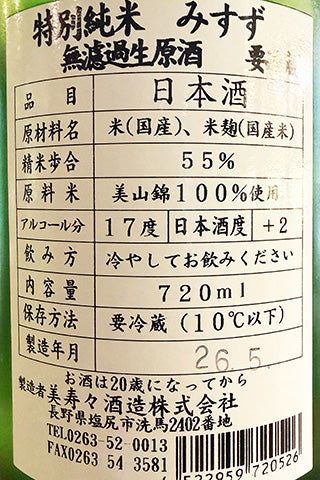 特別純米 みすず
無濾過生原酒 要冷蔵
品目 日本酒
原材料名 米(国産)、米麹(国産米)
精米歩合 55%
原料米 美山錦100%使用
アルコール分 17度 日本酒度 +2
飲み方 冷やしてお飲みください
内容量 720ml
保存方法 要冷蔵(10℃以下)
製造年月 26.5.
お酒は20歳になってから
製造者 美寿々酒造株式会社
長野県塩尻市洗馬2402番地
TEL0263-52-0013
FAX0263 54 3581
532959 720526